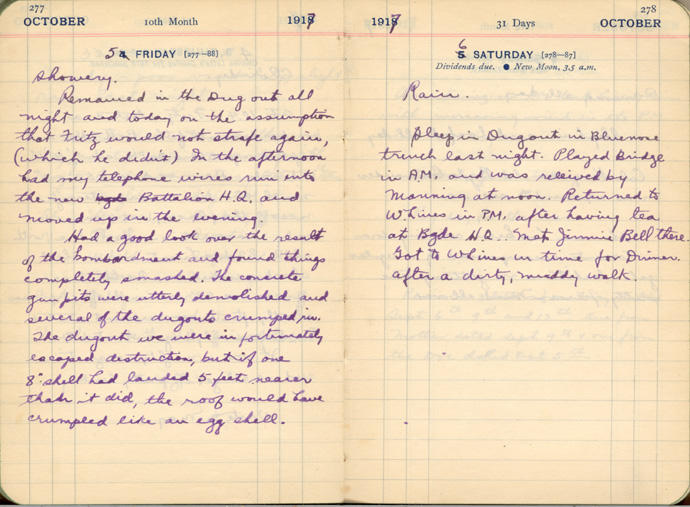 277
OCTOBER 10th Month 1917
5 FRIDAY [277—88]
Showery.
Remained in the Dug out all
night and today on the assumption
that Fritz would not strafe again,
(which he didn't) In the afternoon
had my telephone wires run into
the new Battalion H.Q. and
moved up in the evening.
Had a good look over the result
of the bombardment and found things
completely smashed. The concrete
gun pits were utterly demolished and
several of the dugouts crumped in.
The dugout we were in fortunately
escaped destruction, but if one
8" shell had landed 5 feet nearer
than it did, the roof would have
crumpled like an egg shell.
278
1917 31 Days OCTOBER
6 SATURDAY [278—87]
Dividends due. ● New Moon, 3.5 a.m.
Rain.
Sleep in Dugout in Bluenose
trench last night. Played Bridge
in A.M. and was releived by
Manning at noon. Returned to
Whines in P.M. after having tea
at Bgde H.Q. Met Jimmie Bell there.
Got to Whines in time for Dinner.
after a dirty, muddy walk.